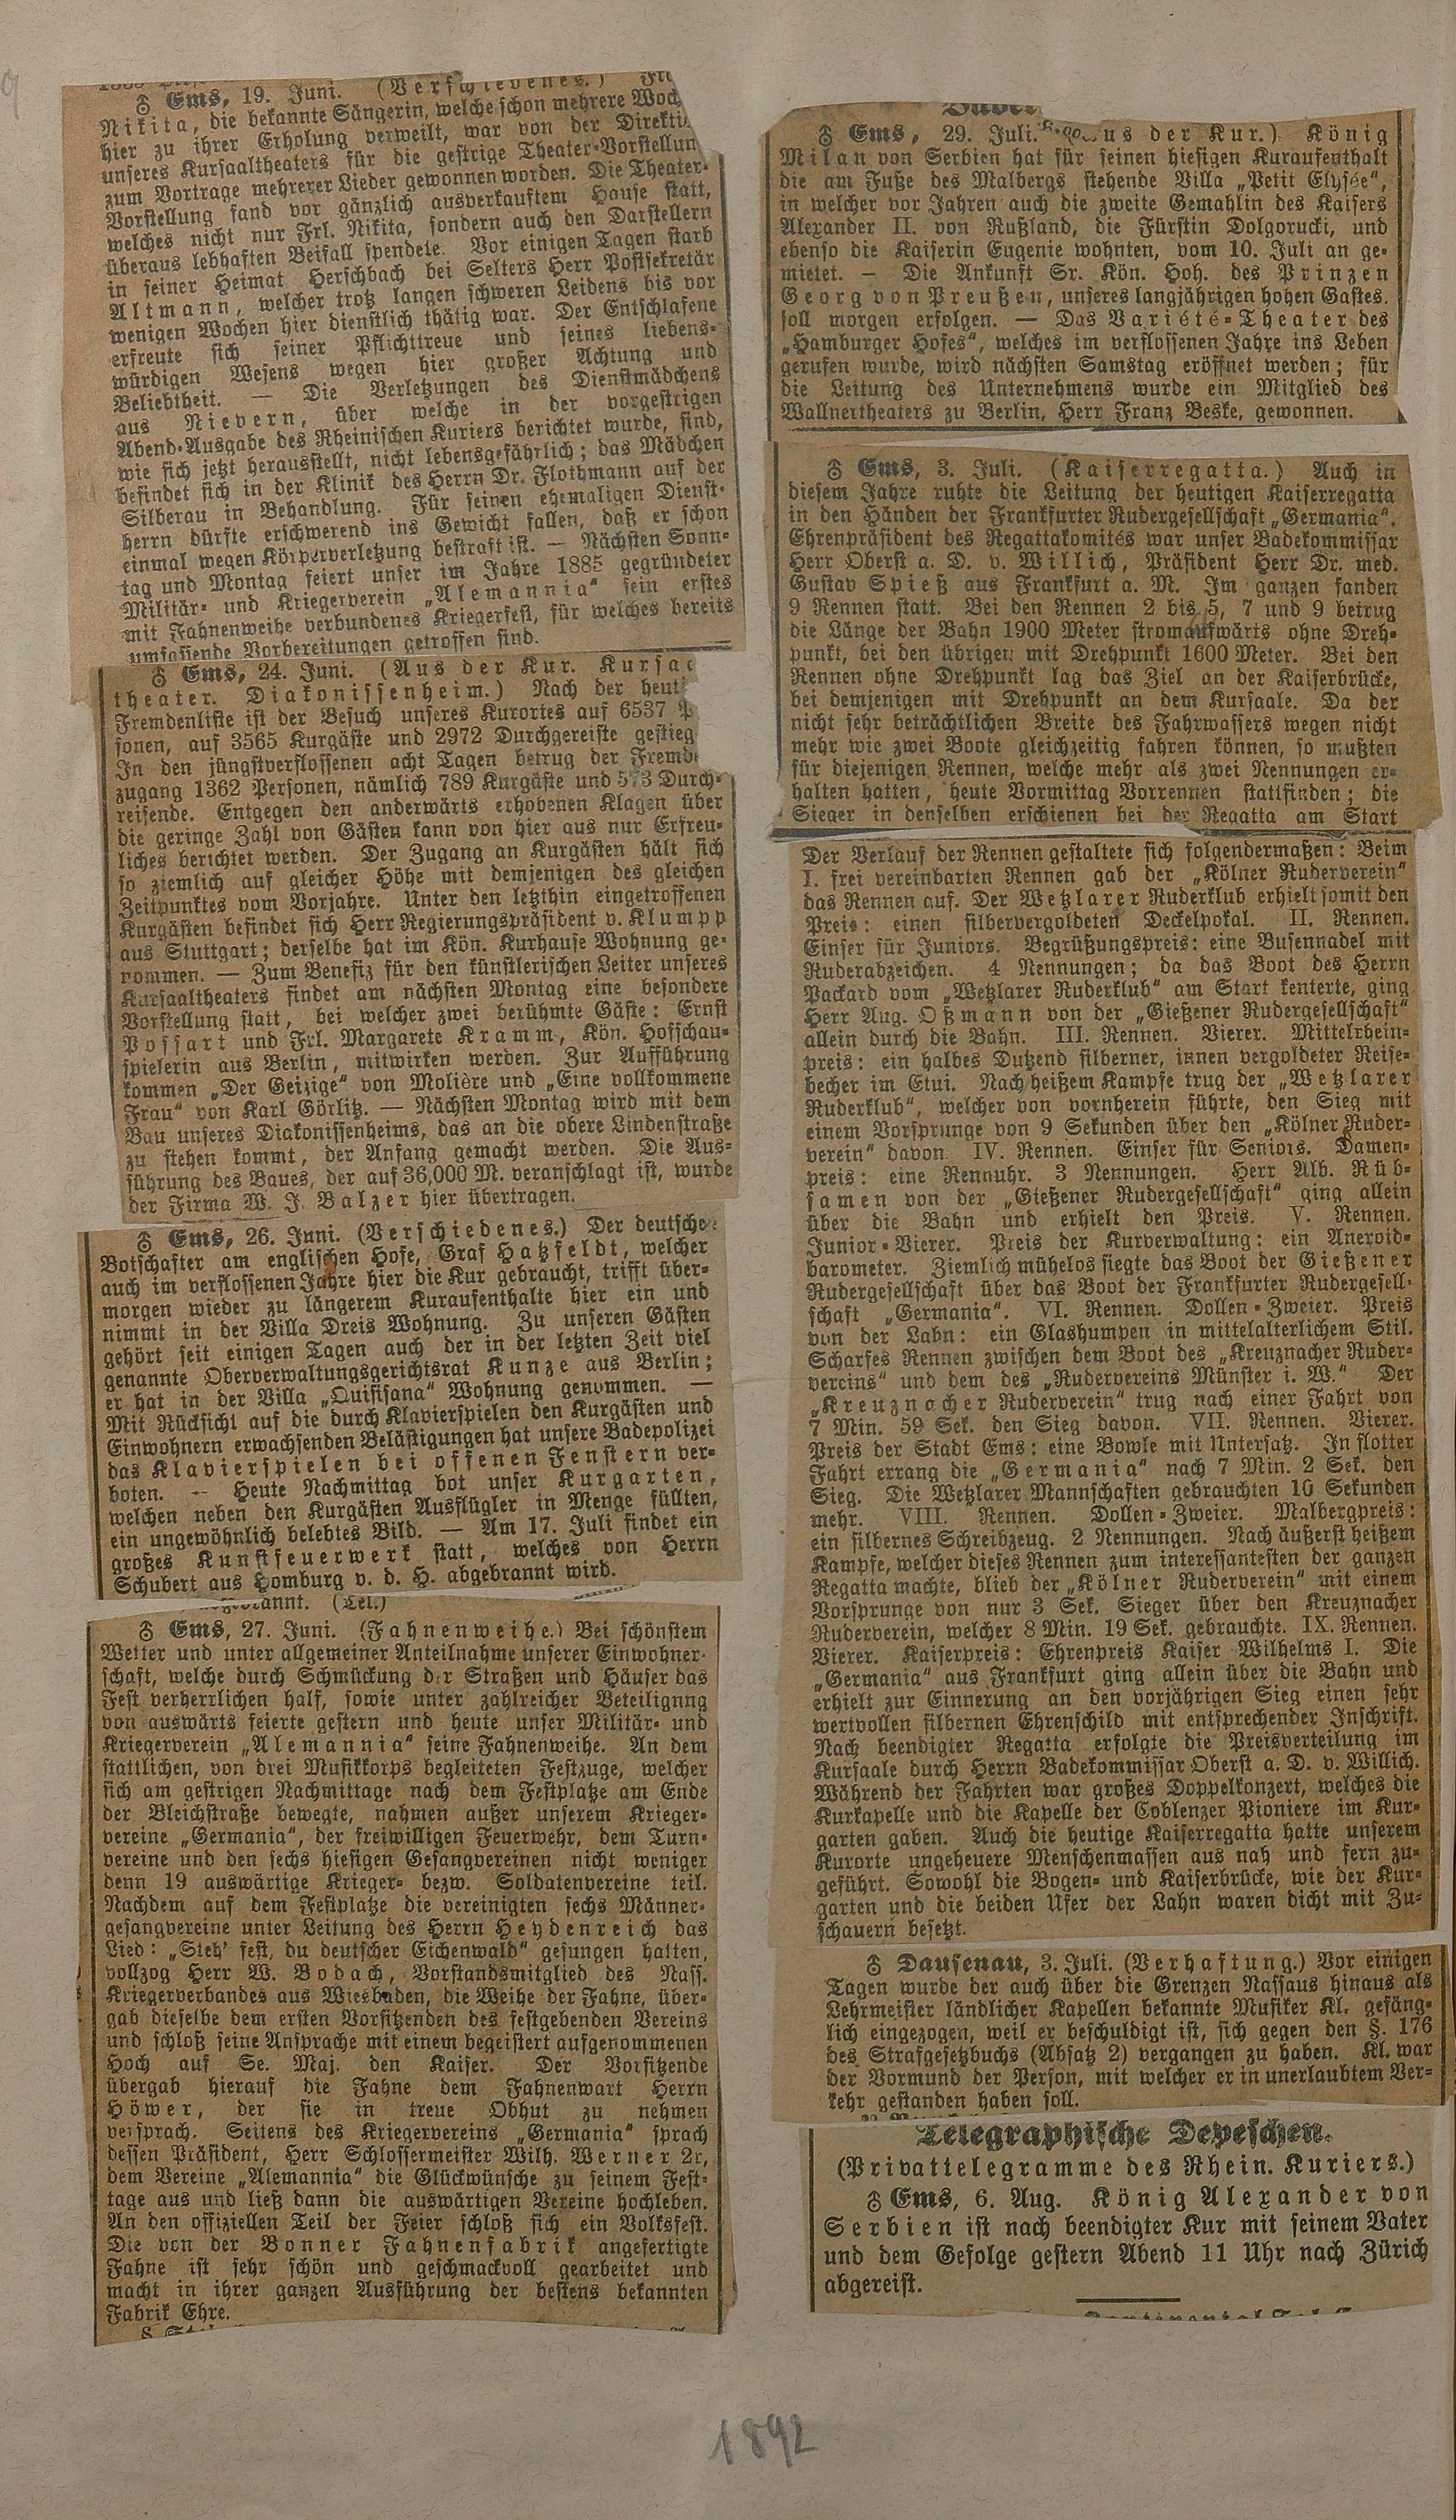 ♁ Ems, 19. Juni. (Verschiedenes.) Frl.
Nikita, die bekannte Sängerin, welche schon mehrere Woch
hier zu ihrer Erholung verweilt, war von der Direkti
unseres Kursaaltheaters für die gestrige Theater-Vorstellun
zum Vortrage mehrerer Lieder gewonnen worden. Die Theater-
Vorstellung fand vor gänzlich ausverkauftem Hause statt,
welches nicht nur Frl. Nikita, sondern auch den Darstellern
überaus lebhaften Beifall spendete. Vor einigen Tagen starb
in seiner Heimat Herschbach bei Selters Herr Postsekretär
Altmann, welcher trotz langen schweren Leidens bis vor
wenigen Wochen hier dienstlich thätig war. Der Entschlafene
erfreute sich seiner Pflichttreue und seines liebens-
würdigen Wesens wegen hier großer Achtung und
Beliebtheit. — Die Verletzungen des Dienstmädchens
aus Nievern, über welche in der vorgestrigen
Abend-Ausgabe des Rheinischen Kuriers berichtet wurde, sind,
wie sich jetzt herausstellt, nicht lebensgefährlich; das Mädchen
befindet sich in der Klinik des Herrn Dr. Flothmann auf der
Silberau in Behandlung. Für seinen ehemaligen Dienst-
herrn dürfte erschwerend ins Gewicht fallen, daß er schon
einmal wegen Körperverletzung bestraft ist. — Nächsten Sonn-
tag und Montag feiert unser im Jahre 1885 gegründeter
Militär- und Kriegerverein „Alemannia“ sein erstes
mit Fahnenweihe verbundenes Kriegerfest, für welches bereits
umfassende Vorbereitungen getroffen sind.
♁ Ems, 24. Juni. (Aus der Kur. Kursaa
theater. Diakonissenheim.) Nach der heuti
Fremdenliste ist der Besuch unseres Kurortes auf 6537 P
sonen, auf 3565 Kurgäste und 2972 Durchgereiste gestieg
In den jüngstverflossenen acht Tagen betrug der Fremd
zugang 1362 Personen, nämlich 789 Kurgäste und 573 Durch-
reisende. Entgegen den anderwärts erhobenen Klagen über
die geringe Zahl von Gästen kann von hier aus nur Erfreu-
liches berichtet werden. Der Zugang an Kurgästen hält sich
so ziemlich auf gleicher Höhe mit demjenigen des gleichen
Zeitpunktes vom Vorjahre. Unter den letzthin eingetroffenen
Kurgästen befindet sich Herr Regierungspräsident v. Klumpp
aus Stuttgart; derselbe hat im Kön. Kurhause Wohnung ge-
nommen. — Zum Benefiz für den künstlerischen Leiter unseres
Kursaaltheaters findet am nächsten Montag eine besondere
Vorstellung statt, bei welcher zwei berühmte Gäste: Ernst
Possart und Frl. Margarete Kramm, Kön. Hofschau-
spielerin aus Berlin, mitwirken werden. Zur Aufführung
kommen „Der Geizige“ von Molière und „Eine vollkommene
Frau“ von Karl Görlitz. — Nächsten Montag wird mit dem
Bau unseres Diakonissenheims, das an die obere Lindenstraße
zu stehen kommt, der Anfang gemacht werden. Die Aus-
führung des Baues, der auf 36,000 M. veranschlagt ist, wurde
der Firma W. J. Balzer hier übertragen.
♁ Ems, 26. Juni. (Verschiedenes.) Der deutsche
Botschafter am englischen Hofe, Graf Hatzfeldt, welcher
auch im verflossenen Jahre hier die Kur gebraucht, trifft über-
morgen wieder zu längerem Kuraufenthalte hier ein und
nimmt in der Villa Dreis Wohnung. Zu unseren Gästen
gehört seit einigen Tagen auch der in der letzten Zeit viel
genannte Oberverwaltungsgerichtsrat Kunze aus Berlin;
er hat in der Villa „Quisisana“ Wohnung genommen. —
Mit Rücksicht auf die durch Klavierspielen den Kurgästen und
Einwohnern erwachsenden Belästigungen hat unsere Badepolizei
das Klavierspielen bei offenen Fenstern ver-
boten. — Heute Nachmittag bot unser Kurgarten,
welchen neben den Kurgästen Ausflügler in Menge füllten,
ein ungewöhnlich belebtes Bild. — Am 17. Juli findet ein
großes Kunstfeuerwerk statt, welches von Herrn
Schubert aus Homburg v. d. H. abgebrannt wird.
(Tel.)
♁ Ems, 27. Juni. (Fahnenweihe.) Bei schönstem
Wetter und unter allgemeiner Anteilnahme unserer Einwohner-
schaft, welche durch Schmückung der Straßen und Häuser das
Fest verherrlichen half, sowie unter zahlreicher Beteilignng
von auswärts feierte gestern und heute unser Militär- und
Kriegerverein „Alemannia“ seine Fahnenweihe. An dem
stattlichen, von drei Musikkorps begleiteten Festzuge, welcher
sich am gestrigen Nachmittage nach dem Festplatze am Ende
der Bleichstraße bewegte, nahmen außer unserem Krieger-
vereine „Germania“, der freiwilligen Feuerwehr, dem Turn-
vereine und den sechs hiesigen Gesangvereinen nicht weniger
denn 19 auswärtige Krieger- bezw. Soldatenvereine teil.
Nachdem auf dem Festplatze die vereinigten sechs Männer-
gesangvereine unter Leitung des Herrn Heydenreich das
Lied: „Steh’ fest, du deutscher Eichenwald“ gesungen hatten,
vollzog Herr W. Bodach, Vorstandsmitglied des Nass.
Kriegerverbandes aus Wiesbaden, die Weihe der Fahne, über-
gab dieselbe dem ersten Vorsitzenden des festgebenden Vereins
und schloß seine Ansprache mit einem begeistert aufgenommenen
Hoch auf Se. Maj. den Kaiser. Der Vorsitzende
übergab hierauf die Fahne dem Fahnenwart Herrn
Höwer, der sie in treue Obhut zu nehmen
versprach. Seitens des Kriegervereins „Germania“ sprach
dessen Präsident, Herr Schlossermeister Wilh. Werner 2r,
dem Vereine „Alemannia“ die Glückwünsche zu seinem Fest-
tage aus und ließ dann die auswärtigen Vereine hochleben.
An den offiziellen Teil der Feier schloß sich ein Volksfest.
Die von der Bonner Fahnenfabrik angefertigte
Fahne ist sehr schön und geschmackvoll gearbeitet und
macht in ihrer ganzen Ausführung der bestens bekannten
Fabrik Ehre.
♁ Ems, 29. Juli. us der Kur.) König
Milan von Serbien hat für seinen hiesigen Kuraufenthalt
die am Fuße des Malbergs stehende Villa „Petit Elysée“,
in welcher vor Jahren auch die zweite Gemahlin des Kaisers
Alexander II. von Rußland, die Fürstin Dolgorucki, und
ebenso die Kaiserin Eugenie wohnten, vom 10. Juli an ge-
mietet. — Die Ankunft Sr. Kön. Hoh. des Prinzen
Georg von Preußen, unseres langjährigen hohen Gastes,
soll morgen erfolgen. — Das Variété-Theater des
„Hamburger Hofes“, welches im verflossenen Jahre ins Leben
gerufen wurde, wird nächsten Samstag eröffnet werden; für
die Leitung des Unternehmens wurde ein Mitglied des
Wallnertheaters zu Berlin, Herr Franz Beske, gewonnen.
♁ Ems, 3. Juli. (Kaiserregatta.) Auch in
diesem Jahre ruhte die Leitung der heutigen Kaiserregatta
in den Händen der Frankfurter Rudergesellschaft „Germania“.
Ehrenpräsident des Regattakomités war unser Badekommissar
Herr Oberst a. D. v. Willich, Präsident Herr Dr. med.
Gustav Spieß aus Frankfurt a. M. Im ganzen fanden
9 Rennen statt. Bei den Rennen 2 bis 5, 7 und 9 betrug
die Länge der Bahn 1900 Meter stromaufwärts ohne Dreh-
punkt, bei den übrigen mit Drehpunkt 1600 Meter. Bei den
Rennen ohne Drehpunkt lag das Ziel an der Kaiserbrücke,
bei demjenigen mit Drehpunkt an dem Kursaale. Da der
nicht sehr beträchtlichen Breite des Fahrwassers wegen nicht
mehr wie zwei Boote gleichzeitig fahren können, so mußten
für diejenigen Rennen, welche mehr als zwei Nennungen er-
halten hatten, heute Vormittag Vorrennen stattfinden; die
Sieger in denselben erschienen bei der Regatta am Start
Der Verlauf der Rennen gestaltete sich folgendermaßen: Beim
I. frei vereinbarten Rennen gab der „Kölner Ruderverein“
das Rennen auf. Der Wetzlarer Ruderklub erhielt somit den
Preis: einen silbervergoldeten Deckelpokal. II. Rennen.
Einser für Juniors. Begrüßungspreis: eine Busennadel mit
Ruderabzeichen. 4 Nennungen; da das Boot des Herrn
Packard vom „Wetzlarer Ruderklub“ am Start kenterte, ging
Herr Aug. Oßmann von der „Gießener Rudergesellschaft“
allein durch die Bahn. III. Rennen. Vierer. Mittelrhein-
preis: ein halbes Dutzend silberner, innen vergoldeter Reise-
becher im Etui. Nach heißem Kampfe trug der „Wetzlarer
Ruderklub“, welcher von vornherein führte, den Sieg mit
einem Vorsprunge von 9 Sekunden über den „Kölner Ruder-
verein“ davon. IV. Rennen. Einser für Seniors. Damen-
preis: eine Rennuhr. 3 Nennungen. Herr Alb. Rüb-
samen von der „Gießener Rudergesellschaft“ ging allein
über die Bahn und erhielt den Preis. V. Rennen.
Junior-Vierer. Preis der Kurverwaltung: ein Aneroid-
barometer. Ziemlich mühelos siegte das Boot der Gießener
Rudergesellschaft über das Boot der Frankfurter Rudergesell-
schaft „Germania“. VI. Rennen. Dollen-Zweier. Preis
von der Lahn: ein Glashumpen in mittelalterlichem Stil.
Scharfes Rennen zwischen dem Boot des „Kreuznacher Ruder-
vereins“ und dem des „Rudervereins Münster i. W.“ Der
„Kreuznacher Ruderverein“ trug nach einer Fahrt von
7 Min. 59 Sek. den Sieg davon. VII. Rennen. Vierer.
Preis der Stadt Ems: eine Bowle mit Untersatz. In flotter
Fahrt errang die „Germania“ nach 7 Min. 2 Sek. den
Sieg. Die Wetzlarer Mannschaften gebrauchten 10 Sekunden
mehr. VIII. Rennen. Dollen-Zweier. Malbergpreis:
ein silbernes Schreibzeug. 2 Nennungen. Nach äußerst heißem
Kampfe, welcher dieses Rennen zum interessantesten der ganzen
Regatta machte, blieb der „Kölner Ruderverein“ mit einem
Vorsprunge von nur 3 Sek. Sieger über den Kreuznacher
Ruderverein, welcher 8 Min. 19 Sek. gebrauchte. IX. Rennen.
Vierer. Kaiserpreis: Ehrenpreis Kaiser Wilhelms I. Die
„Germania“ aus Frankfurt ging allein über die Bahn und
erhielt zur Einnerung an den vorjährigen Sieg einen sehr
wertvollen silbernen Ehrenschild mit entsprechender Inschrift.
Nach beendigter Regatta erfolgte die Preisverteilung im
Kursaale durch Herrn Badekommissar Oberst a. D. v. Willich.
Während der Fahrten war großes Doppelkonzert, welches die
Kurkapelle und die Kapelle der Coblenzer Pioniere im Kur-
garten gaben. Auch die heutige Kaiserregatta hatte unserem
Kurorte ungeheuere Menschenmassen aus nah und fern zu-
geführt. Sowohl die Bogen- und Kaiserbrücke, wie der Kur-
garten und die beiden Ufer der Lahn waren dicht mit Zu-
schauern besetzt.
♁ Dausenau, 3. Juli. (Verhaftung.) Vor einigen
Tagen wurde der auch über die Grenzen Nassaus hinaus als
Lehrmeister ländlicher Kapellen bekannte Musiker Kl. gefäng-
lich eingezogen, weil er beschuldigt ist, sich gegen den §. 176
des Strafgesetzbuchs (Absatz 2) vergangen zu haben. Kl. war
der Vormund der Person, mit welcher er in unerlaubtem Ver-
kehr gestanden haben soll.
Telegraphische Depeschen.
(Privattelegramme des Rhein. Kuriers.)
♁ Ems, 6. Aug. König Alexander von
Serbien ist nach beendigter Kur mit seinem Vater
und dem Gefolge gestern Abend 11 Uhr nach Zürich
abgereist.
1892